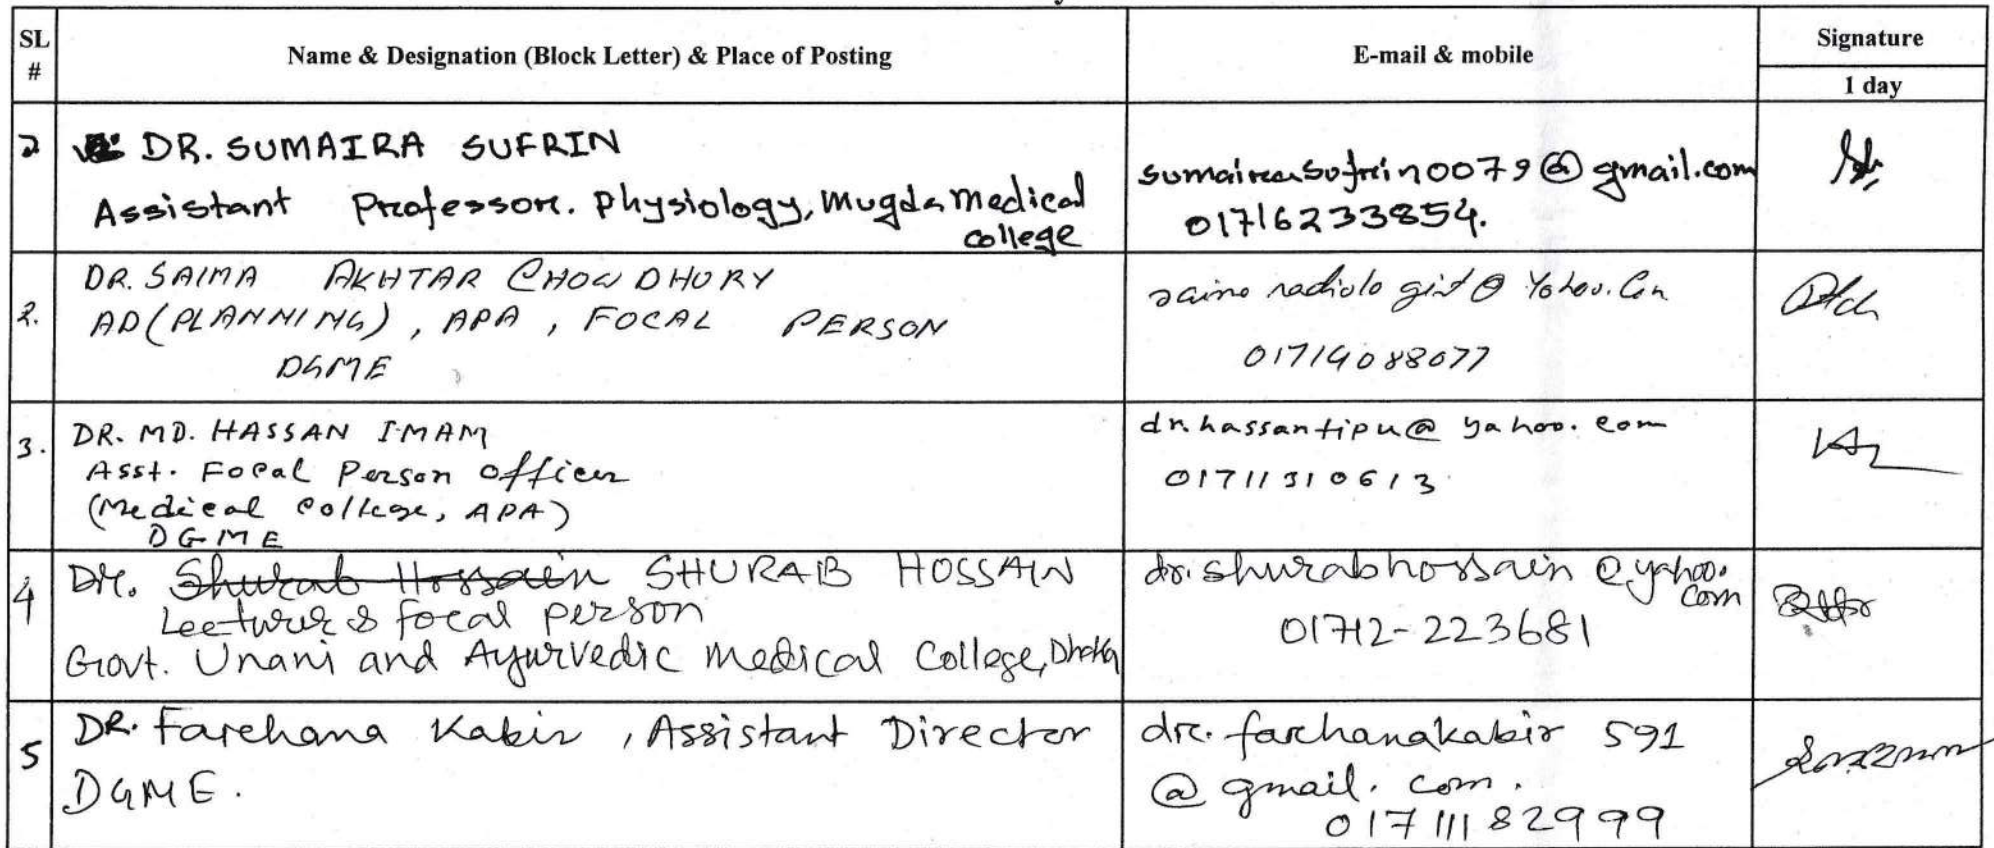 SL # Name & Designation (Block Letter) & Place of Posting E-mail & mobile Signature
1 day
DR. SUMAIRA SUFRIN
Assistant Professor. Physiology, Mugda Medical
college
sumairasufrin0079@gmail.com
01716233854.
2.
DR. SAIMA AKHTAR CHOWDHURY
AD (PLANNING), APA, FOCAL PERSON
DGME
saima radiologist@Yahoo.Com
01714088077
3.
DR. MD. HASSAN IMAM
Asst. Focal Person officer
(Medical College, APA)
DGME
dr.hassantipu@yahoo.com
01711310613
4
Dr. Shurab Hossain SHURAB HOSSAIN
Lecturer & focal person
Govt. Unani and Ayurvedic Medical College, Dhaka
dr.shurabhossain@yahoo.
com
01712-223681
5
DR. Farhana Kabir, Assistant Director
DGME.
dr.farhanakabir 591
@ gmail. com.
01711182999